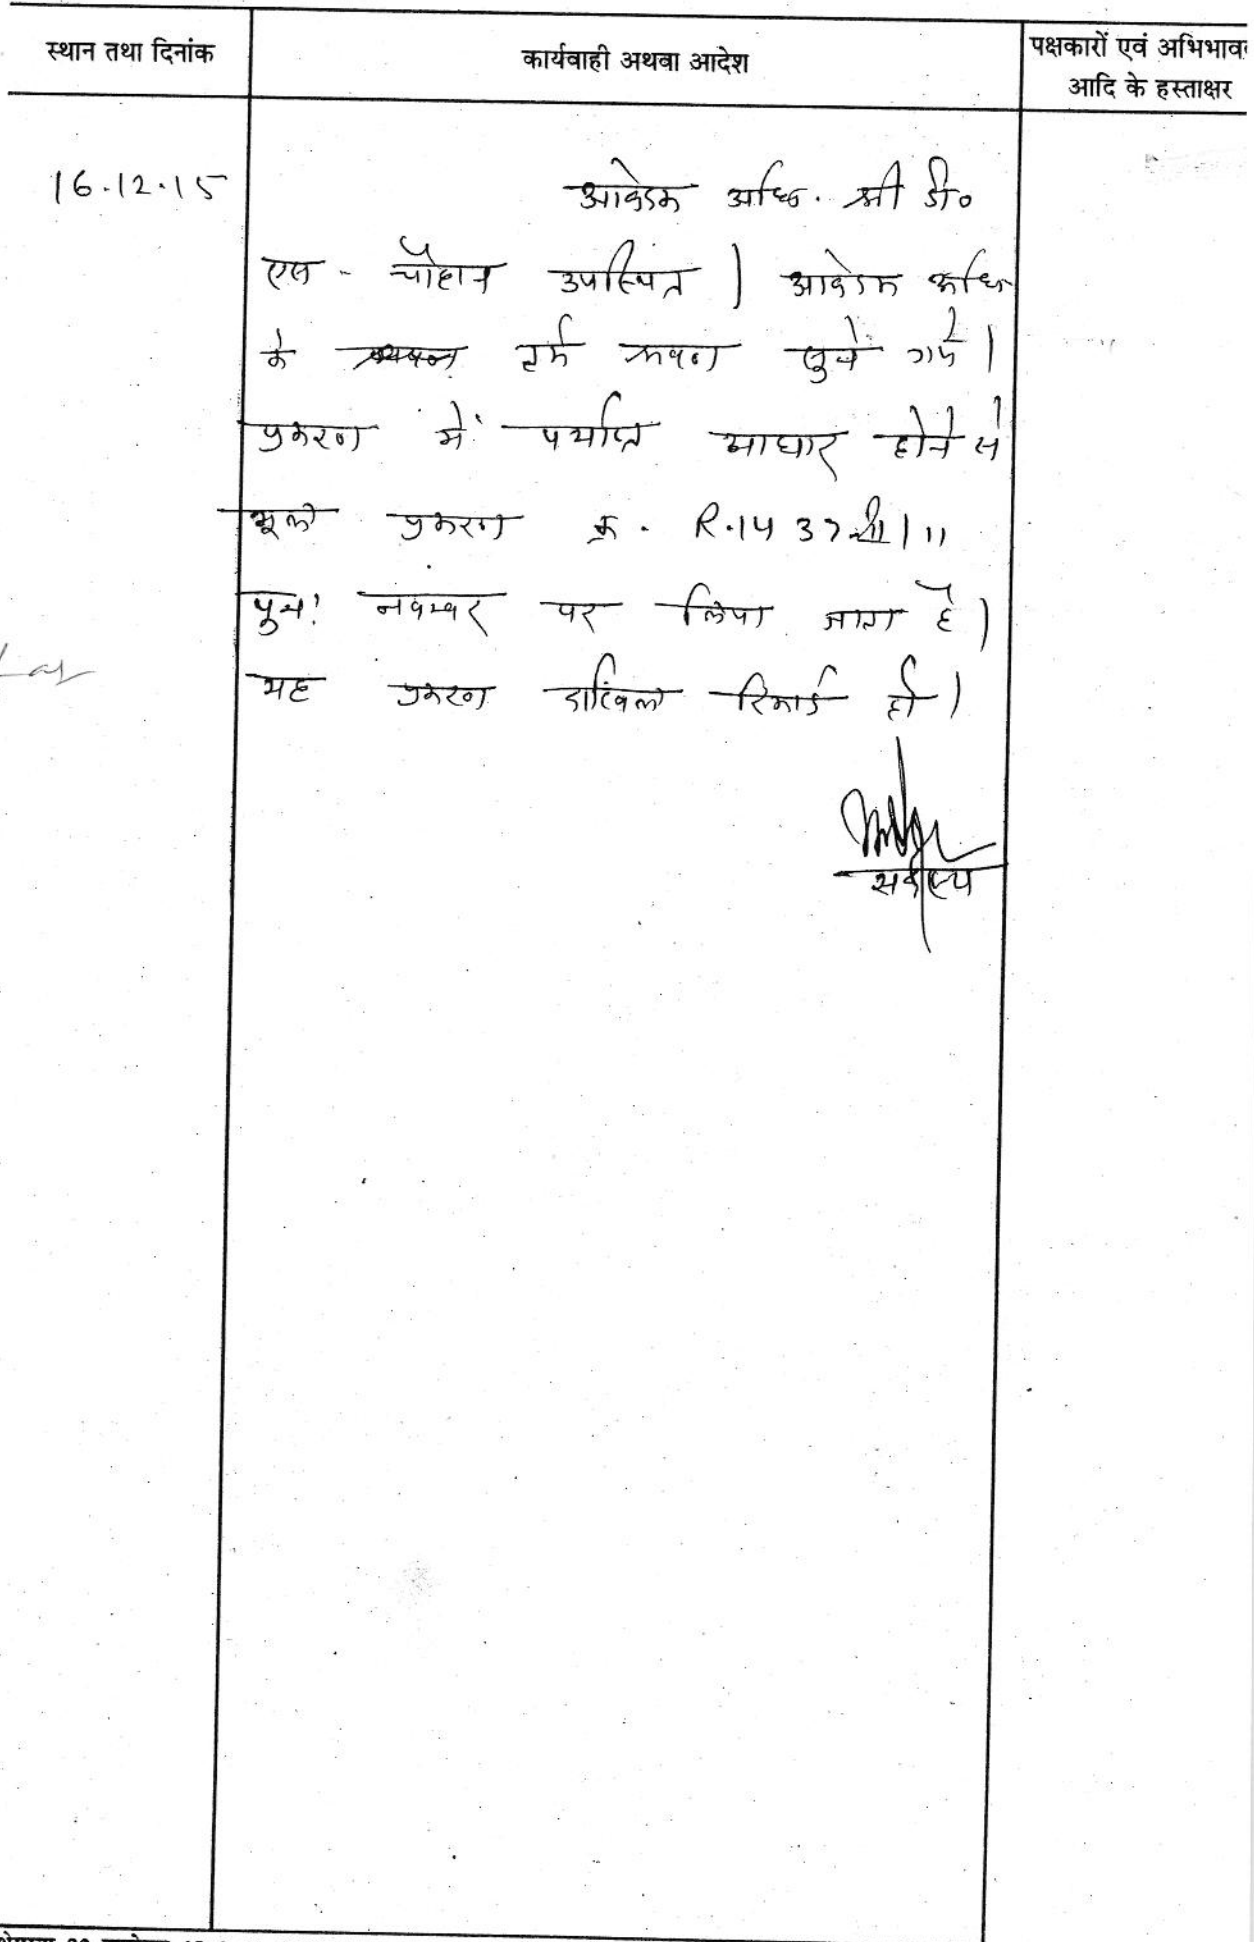 स्थान तथा दिनांक
कार्यवाही अथवा आदेश
पक्षकारों एवं अभिभाव
आदि के हस्ताक्षर
16.12.15
आवेदक अधि. श्री डी०
एस - चौहान उपस्थित । आवेदक अधि
के तर्क श्रवण सुने गये ।
प्रकरण में पर्याप्त आधार होने से
मूल प्रकरण क्र. R.1437 11
पुनः नवम्बर पर लिया जाता है ।
यह प्रकरण दाखिल रिकार्ड हो ।
सदस्य